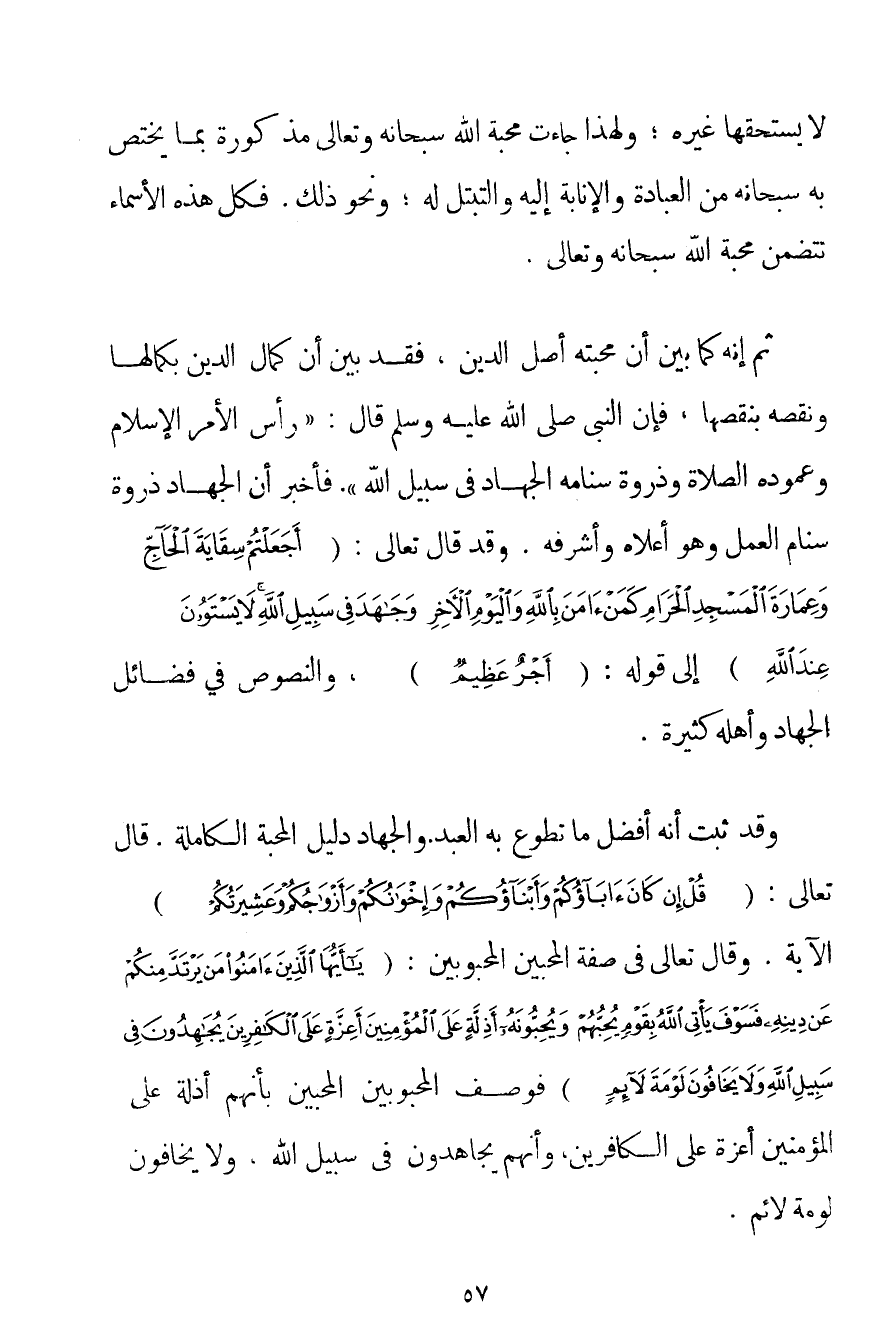 لا يستحقها غيره ؛ ولهذا جاءت محبة الله سبحانه وتعالى مذكورة بما يختص
به سبحانه من العبادة والإنابة إليه والتبتل له ؛ ونحو ذلك . فكل هذه الأسماء
تتضمن محبة الله سبحانه وتعالى .
ثم إنه كما بين أن محبته أصل الدين ، فقد بين أن كمال الدين بكمالها
ونقصه بنقصها ، فإن النبى صلى الله عليه وسلم قال : « رأس الأمر الإسلام
وعموده الصلاة وذروة سنامه الجهاد فى سبيل الله » . فأخبر أن الجهاد ذروة
سنام العمل وهو أعلاه وأشرفه . وقد قال تعالى : ( أَجَعَلْتُمْ سِقَايَةَ ٱلْحَآجِّ
وَعِمَارَةَ ٱلْمَسْجِدِ ٱلْحَرَامِ كَمَنْ ءَامَنَ بِٱللَّهِ وَٱلْيَوْمِ ٱلْأَخِرِ وَجَٰهَدَ فِى سَبِيلِ ٱللَّهِۚ لَا يَسْتَوُۥنَ
عِندَ ٱللَّهِ ) إلى قوله : ( أَجْرٌ عَظِيمٌ ) ، والنصوص في فضائل
الجهاد وأهله كثيرة .
وقد ثبت أنه أفضل ما تطوع به العبد . والجهاد دليل المحبة الكاملة . قال
تعالى : ( قُلْ إِن كَانَ ءَابَآؤُكُمْ وَأَبْنَآؤُكُمْ وَإِخْوَٰنُكُمْ وَأَزْوَٰجُكُمْ وَعَشِيرَتُكُمْ )
الآية . وقال تعالى فى صفة المحبين المحبوبين : ( يَٰٓأَيُّهَا ٱلَّذِينَ ءَامَنُوا۟ مَن يَرْتَدَّ مِنكُمْ
عَن دِينِهِۦ فَسَوْفَ يَأْتِى ٱللَّهُ بِقَوْمٍ يُحِبُّهُمْ وَيُحِبُّونَهُۥٓ أَذِلَّةٍ عَلَى ٱلْمُؤْمِنِينَ أَعِزَّةٍ عَلَى ٱلْكَٰفِرِينَ يُجَٰهِدُونَ فِى
سَبِيلِ ٱللَّهِ وَلَا يَخَافُونَ لَوْمَةَ لَآئِمٍ ) فوصف المحبوبين المحبين بأنهم أذلة على
المؤمنين أعزة على الكافرين ، وأنهم يجاهدون فى سبيل الله ، ولا يخافون
لومة لائم .
٥٧